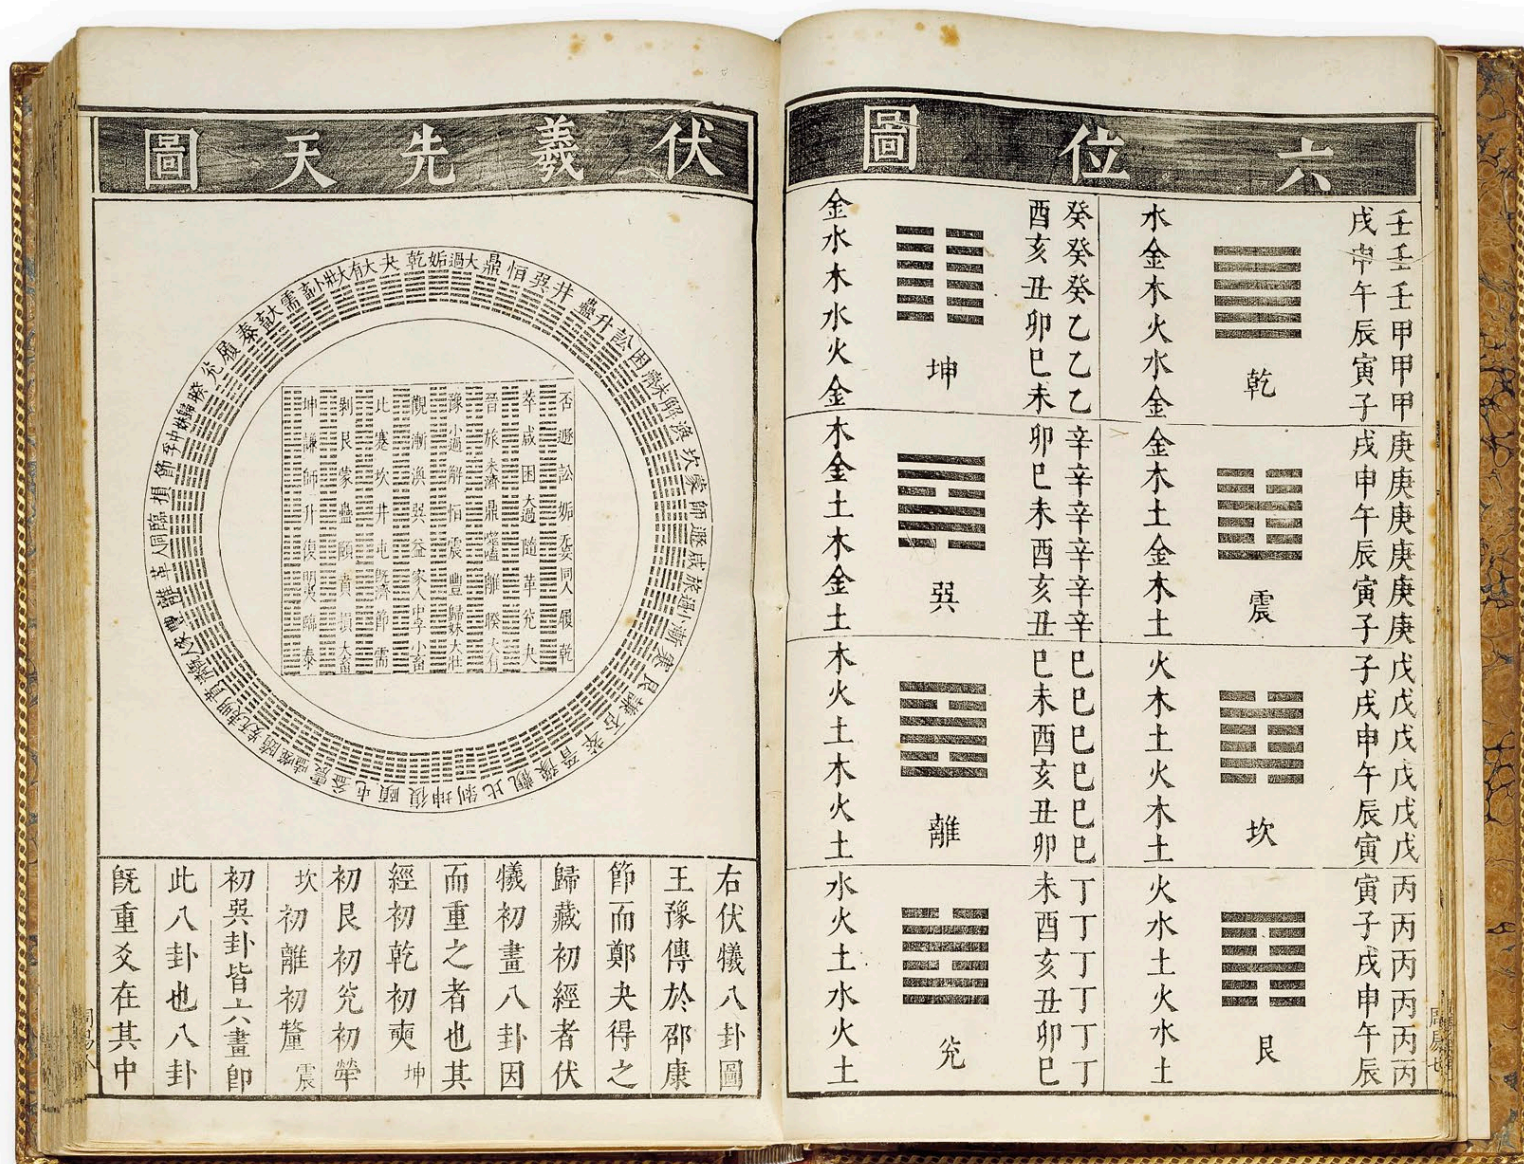 六位圖
壬壬壬甲甲甲
戌申午辰寅子
乾
水金木火水金
癸癸癸乙乙乙
酉亥丑卯巳未
坤
金水木水火金
庚庚庚庚庚庚
戌申午辰寅子
震
金木土金木土
辛辛辛辛辛辛
卯巳未酉亥丑
巽
木金土木金土
戊戊戊戊戊戊
子戌申午辰寅
坎
火木土火木土
巳巳巳巳巳巳
巳未酉亥丑卯
離
木火土木火土
丙丙丙丙丙丙
寅子戌申午辰
艮
火水土火水土
丁丁丁丁丁丁
未酉亥丑卯巳
兌
水火土水火土
伏羲先天圖
姤大過鼎恒巽井蠱升訟困未濟解渙坎蒙師遯咸旅小過漸蹇艮謙否萃晉豫觀比剝坤復頤屯益震噬嗑隨无妄明夷賁既濟家人豐離革同人臨損節中孚歸妹睽兌履泰大畜需小畜大壯大有夬乾
否遯訟姤无妄同人履乾
萃咸困大過隨革兌夬
晉旅未濟鼎噬嗑離睽大有
豫小過解恒震豐歸妹大壯
觀漸渙巽益家人中孚小畜
比蹇坎井屯既濟節需
剝艮蒙蠱頤賁損大畜
坤謙師升復明夷臨泰
右伏犧八卦圖
王豫傳於邵康
節而鄭夬得之
歸藏初經者伏
犧初畫八卦因
而重之者也其
經初乾初奭坤
初艮初兌初犖
坎初離初釐震
初巽卦皆六畫即
此八卦也八卦
既重爻在其中